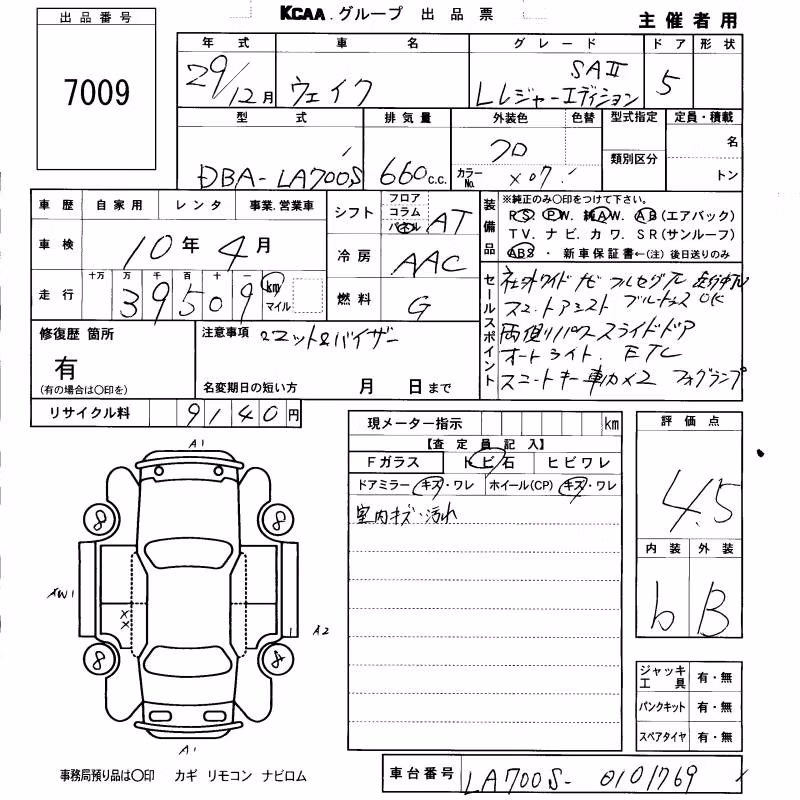 KCAA.グループ 出品票
主催者用
出品番号
7009
年式 車名 グレード ドア 形状
29/12月 ウェイク SAⅡ 5
Lレジャーエディション
型式 排気量 外装色 色替 型式指定 定員・積載
DBA-LA700S 660c.c. クロ 名
カラーNo. X07 類別区分 トン
車歴 自家用 レンタ 事業.営業車
車検 10年4月
走行 十万 万 千 百 十 一
39509 km マイル
シフト フロア コラム パネル AT
冷房 AAC
燃料 G
装備品 ※純正のみ○印をつけて下さい。
P.S. P.W. 純AW. AB(エアバック)
TV. ナビ. カワ. SR(サンルーフ)
ABS ・ 新車保証書←(注)後日送りのみ
セールスポイント
社外ワイドナビ フルセグTV
スマートアシスト ブルートゥースOK
両側パワースライドドア
オートライト. ETC
スマートキー 車カ×2 フォグランプ
修復歴 箇所
有
(有の場合は○印を)
注意事項 マット&バイザー
名変期日の短い方 月 日まで
リサイクル料 9140円
現メーター指示 km
【査定員記入】
Fガラス トビ石 ヒビワレ
ドアミラー キズ・ワレ ホイール(CP) キズ・ワレ
室内キズ・汚れ
評価点
4.5
内装 外装
b B
A1
8 8
AW1
XX
A2
8 4
A1
ジャッキ工具 有・無
パンクキット 有・無
スペアタイヤ 有・無
事務局預り品は○印 カギ リモコン ナビロム
車台番号 LA700S-0101769